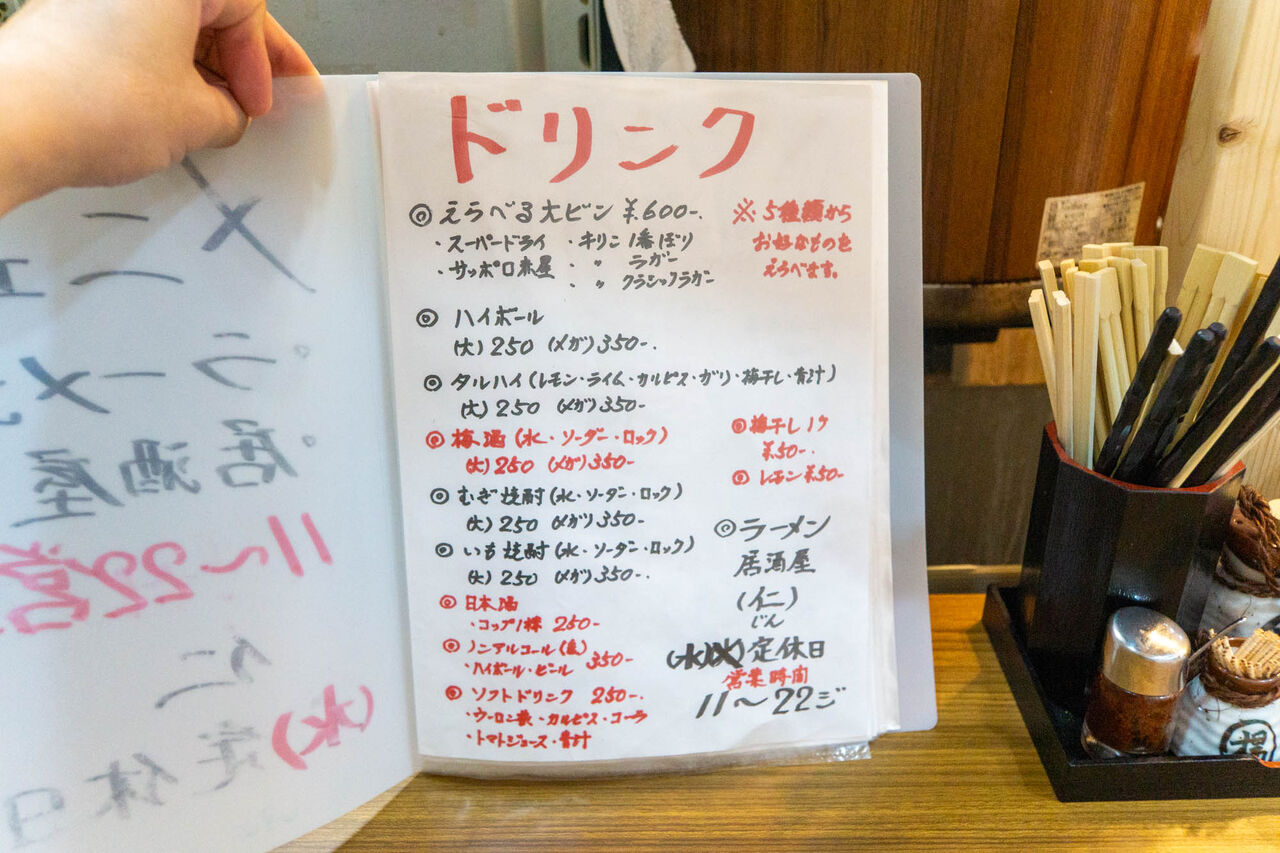 ドリンク
◎ えらべる大ビン ¥600-.
・スーパードライ ・キリン 1番ぼり
・サッポロ赤星 ・〃 ラガー
・〃 クラシックラガー
※ 5種類から
お好なものを
えらべます。
◎ ハイボール
(大) 250 (メガ) 350-.
◎ タルハイ (レモン・ライム・カルピス・ガリ・梅干し・青汁)
(大) 250 (メガ) 350-
◎ 梅酒 (水・ソーダー・ロック)
(大) 250 (メガ) 350-
◎ 梅干し1ケ
¥50-.
◎ レモン ¥50-
◎ むぎ焼酎 (水・ソーダー・ロック)
(大) 250 (メガ) 350-.
◎ いも焼酎 (水・ソーダー・ロック)
(大) 250 (メガ) 350-.
◎ 日本酒
・コップ1杯 250-
◎ ノンアルコール (缶)
・ハイボール・ビール 350-
◎ ソフトドリンク 250-.
・ウーロン茶・カルピス・コーラ
・トマトジュース・青汁
◎ ラーメン
居酒屋
(仁)
じん
(水) 定休日
営業時間
11〜22ジ
メニュー
・ラーメン
・居酒屋
11〜22営
仁
(水)
定休日